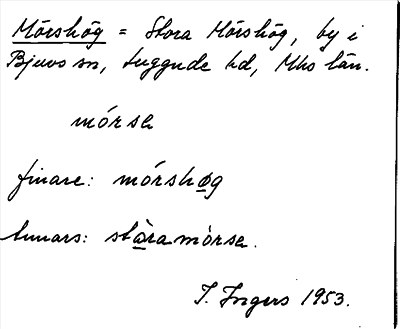 Mörshög = Stora Mörshög, by i
Bjuvs sn, Luggude hd, Mhs län.
mórsa
finare: mórshøg
annars: stòra mòrsa.
I. Ingers 1953.